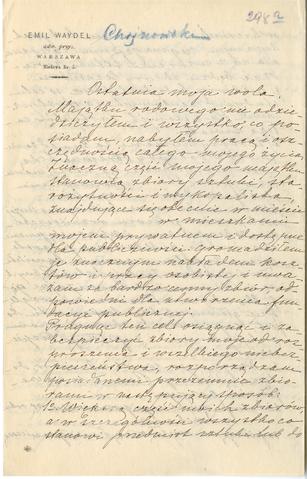 EMIL WAYDEL
adw. przys.
WARSZAWA
Chojnowski
2982
Ostatnia moja wola.
Majątku rodowego nie odzie-
dziczyłem i wszystko, co po-
siadam, nabyłem pracą i osz-
czędnością całego mojego życia.
Znaczną część mojego majątku
stanowią zbiory sztuki, sta-
rożytności i
znajdujące się obecnie
w mieszkaniu
mojem prywatnem i dostępne
dla publiczności. Gromadziłem
je znacznym nakładem kosz-
tów i pracy osobistej i uwa-
żam za bardzo cenny zbiór od-
powiedni dla utworzenia fun-
dacyi publicznej.
Pragnąc ten cel osiągnąć i za-
bezpieczyć zbiory moje od roz-
proszenia i wszelkiego niebez-
pieczeństwa, rozporządzam
przezemnie zbio-
rami w następujący sposób:
1. Większą część moich zbiorów,
a w szczególności wszystko co
stanowi przedmiot sztuki lub do